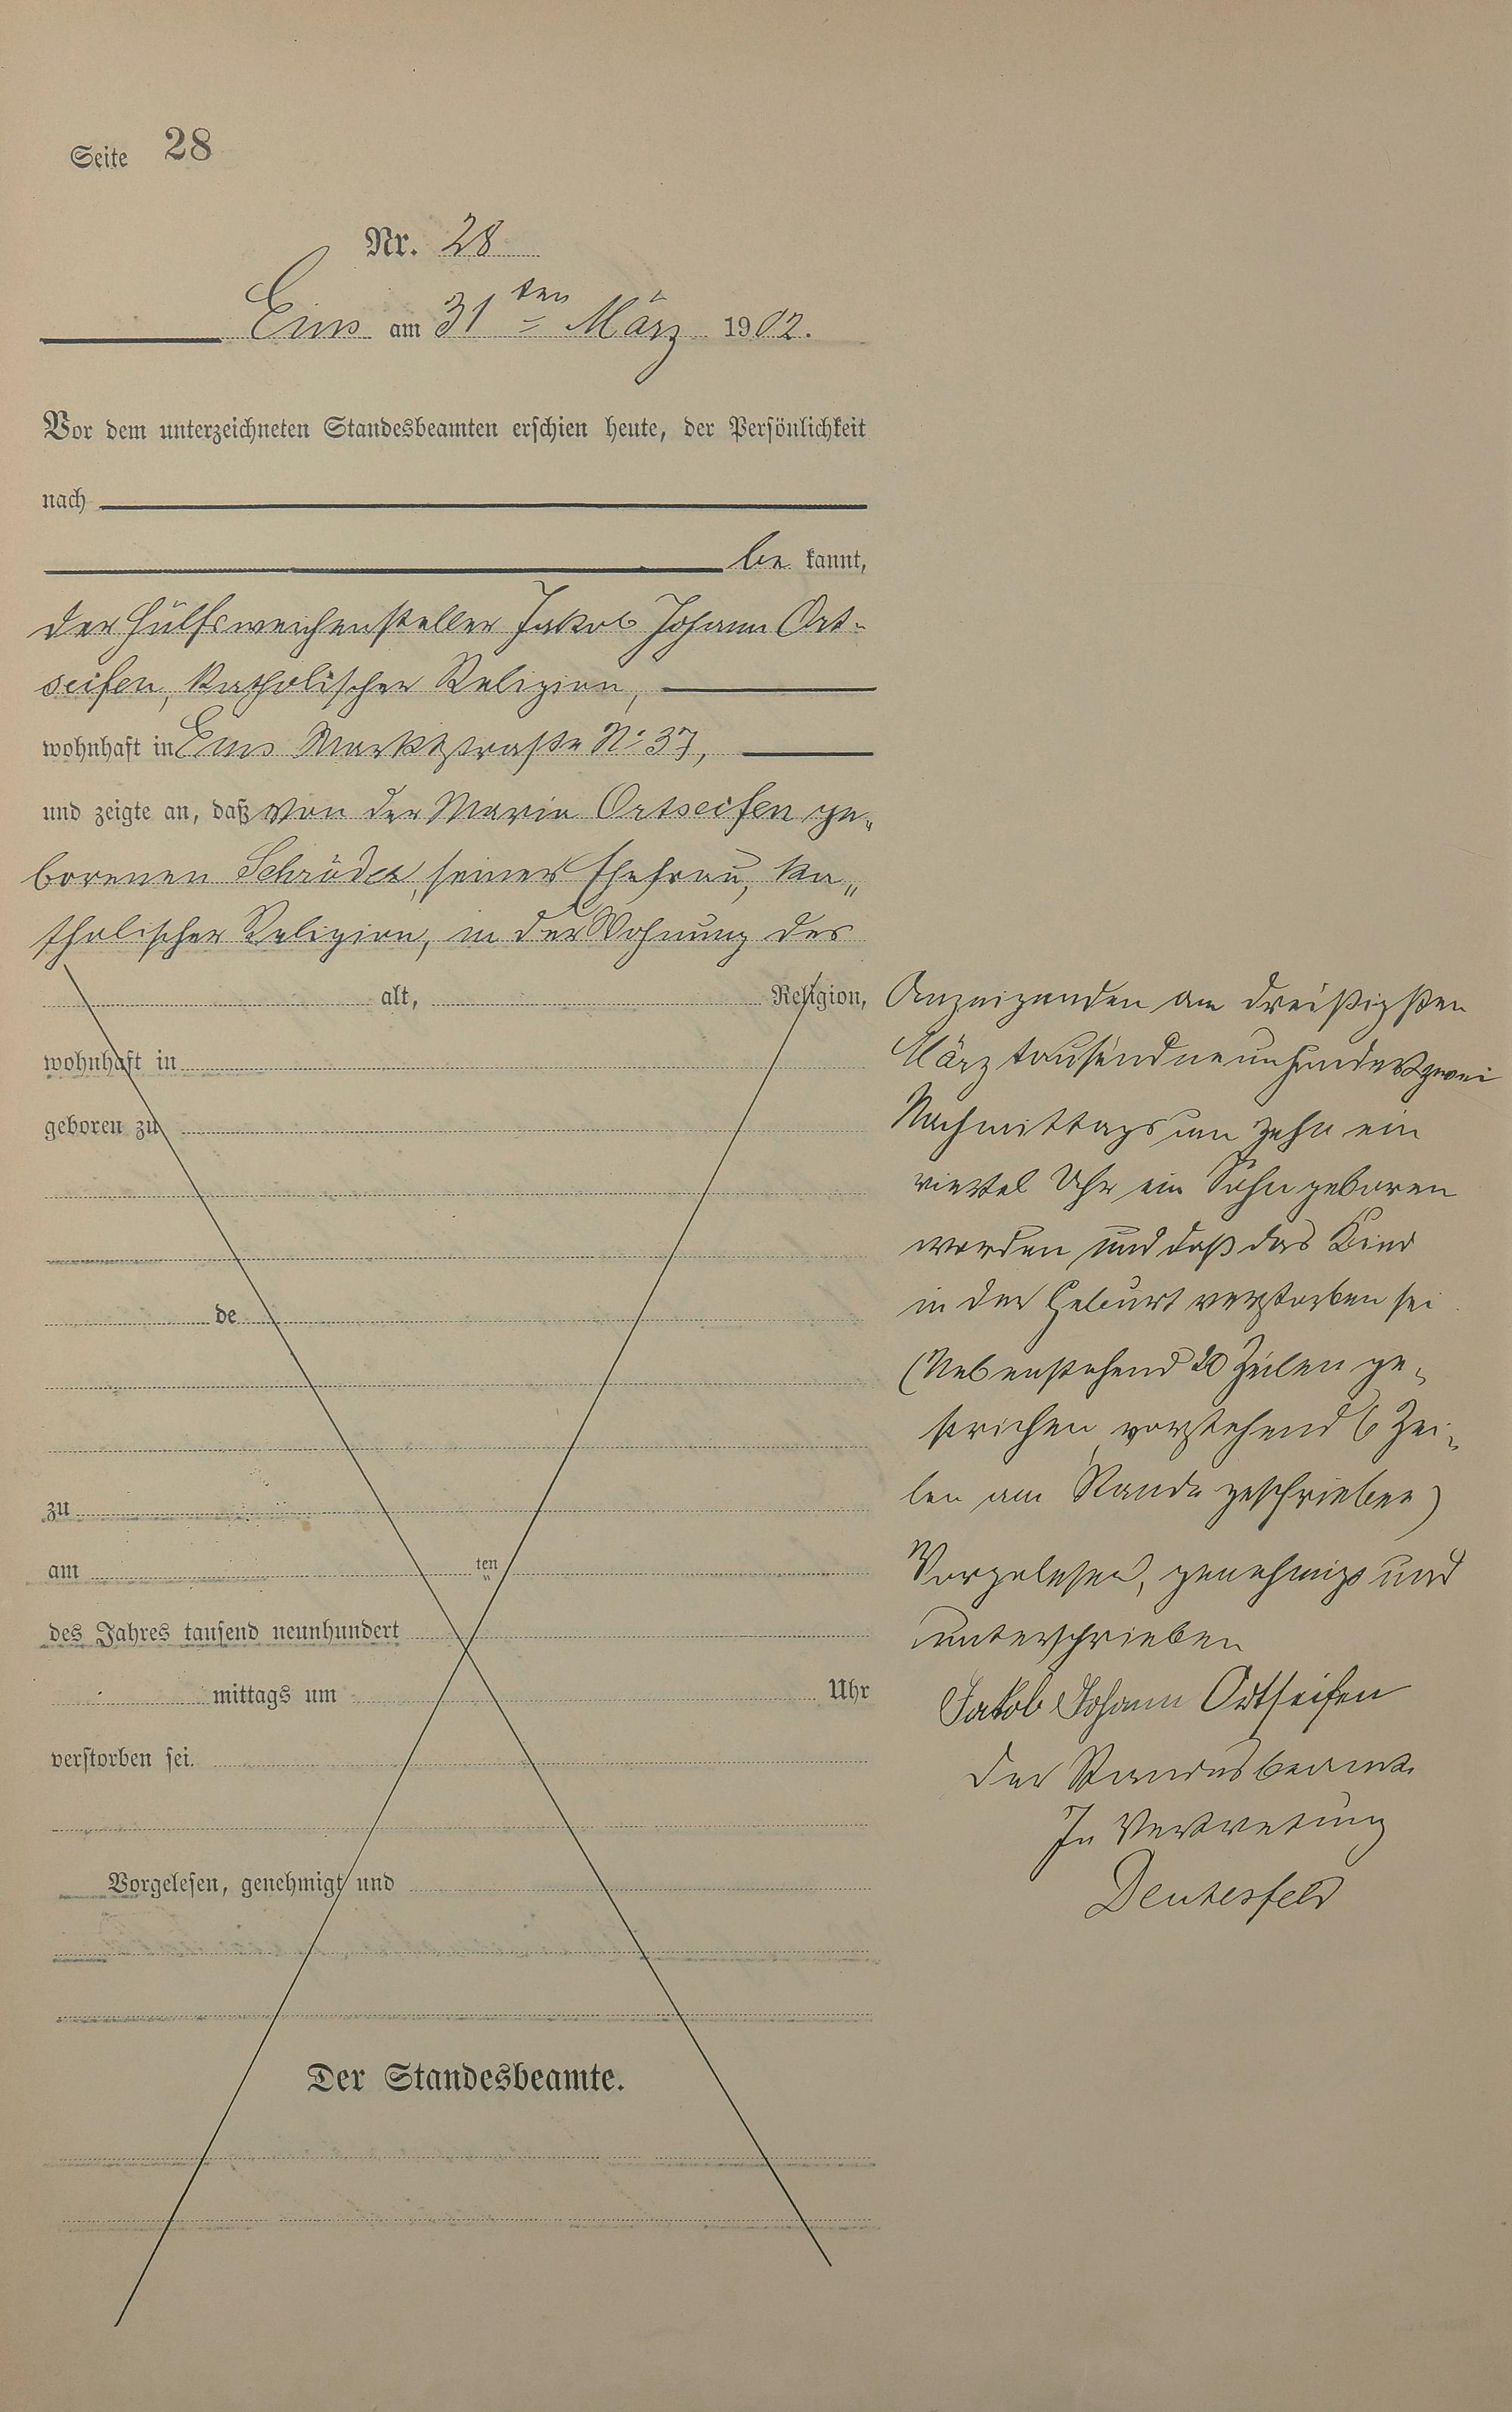 Seite 28
Nr. 28
Ems am 31ten März 1902.
Vor dem unterzeichneten Standesbeamten erschien heute, der Persönlichkeit
nach
be kannt,
der Hülfsweichensteller Jakob Johann Ort-
seifen, katholischer Religion,
wohnhaft in Ems Marktstraße No 37,
und zeigte an, daß von der Maria Ortseifen ge„
borenen Schröder, seiner Ehefrau, ka„
tholischer Religion, in der Wohnung des
alt, Religion,
wohnhaft in
geboren zu
de
zu
am ten
des Jahres tausend neunhundert
mittags um Uhr
verstorben sei.
Vorgelesen, genehmigt und
Der Standesbeamte.
Anzeigenden am dreißigsten
März tausendneunhundertzwei
Nachmittags um zehn ein
viertel Uhr ein Sohn geboren
worden und daß das Kind
in der Geburt verstorben sei
(Nebenstehend 20 Zeilen ge„
strichen, vorstehend 6 Zei„
len am Rande geschrieben)
Vorgelesen, genehmigt und
unterschrieben
Jakob Johann Ortseifen
Der Standesbeamte
In Vertretung
Deutesfeld